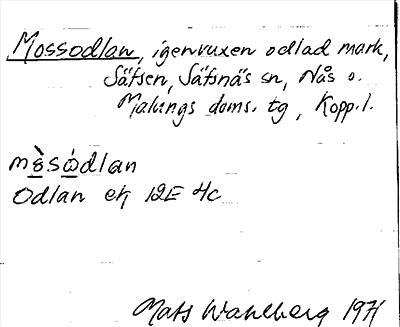 Mossodlan, igenvuxen odlad mark,
Säfsen, Säfsnäs sn, Nås o.
Malungs doms. tg, Kopp.l.
mòsὼdlan
Odlan ek 12E 4c
Mats Wahlberg 1971